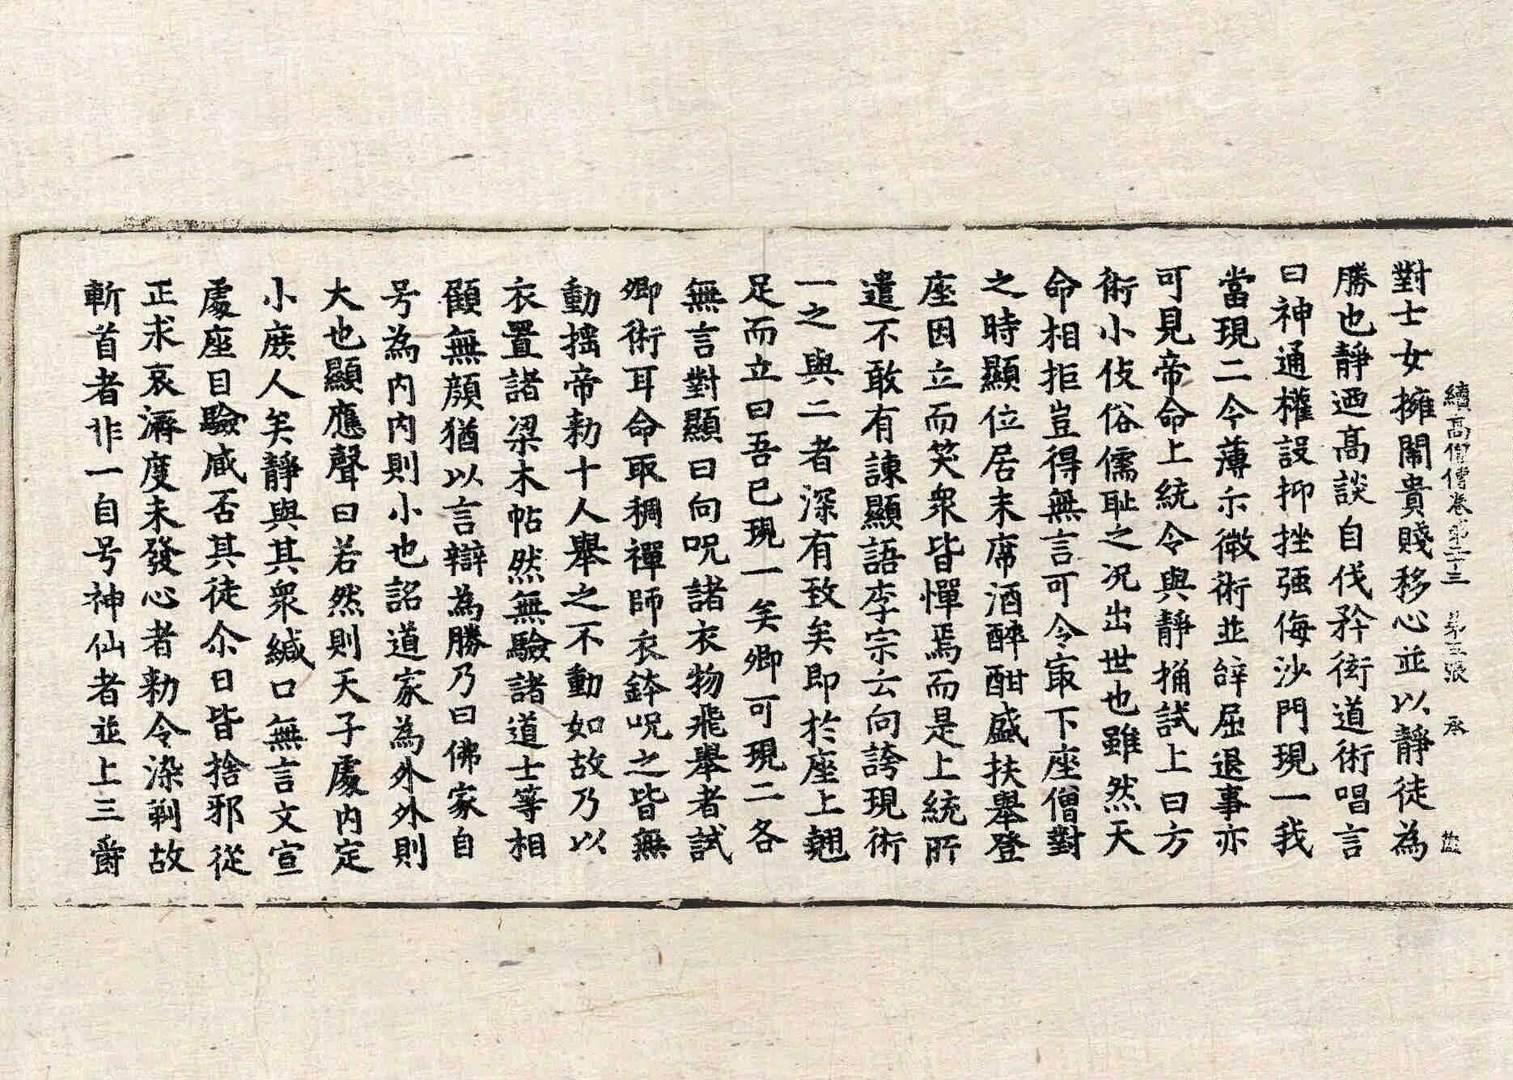 續高僧傳卷第二十三 第三張 承
對士女擁鬧貴賤移心並以靜徒為
勝也靜迺高談自伐矜衒道術唱言
曰神通權設抑挫强侮沙門現一我
當現二今薄示微術並辝屈退事亦
可見帝命上統令與靜捔試上曰方
術小伎俗儒耻之况出世也雖然天
命相拒豈得無言可令冣下座僧對
之時顯位居末席酒醉酣盛扶舉登
座因立而笑衆皆憚焉而是上統所
遣不敢有諫顯語李宗云向誇現術
一之與二者深有致矣即於座上翹
足而立曰吾已現一矣卿可現二各
無言對顯曰向呪諸衣物飛舉者試
卿術耳命取稠禪師衣鉢呪之皆無
動揺帝勑十人舉之不動如故乃以
衣置諸梁木帖然無驗諸道士等相
顧無顔猶以言辯為勝乃曰佛家自
号為内内則小也詺道家為外外則
大也顯應聲曰若然則天子處内定
小庻人矣靜與其衆緘口無言文宣
處座目驗臧否其徒尒日皆捨邪從
正求哀濟度未發心者勑令染剃故
斬首者非一自号神仙者並上三爵